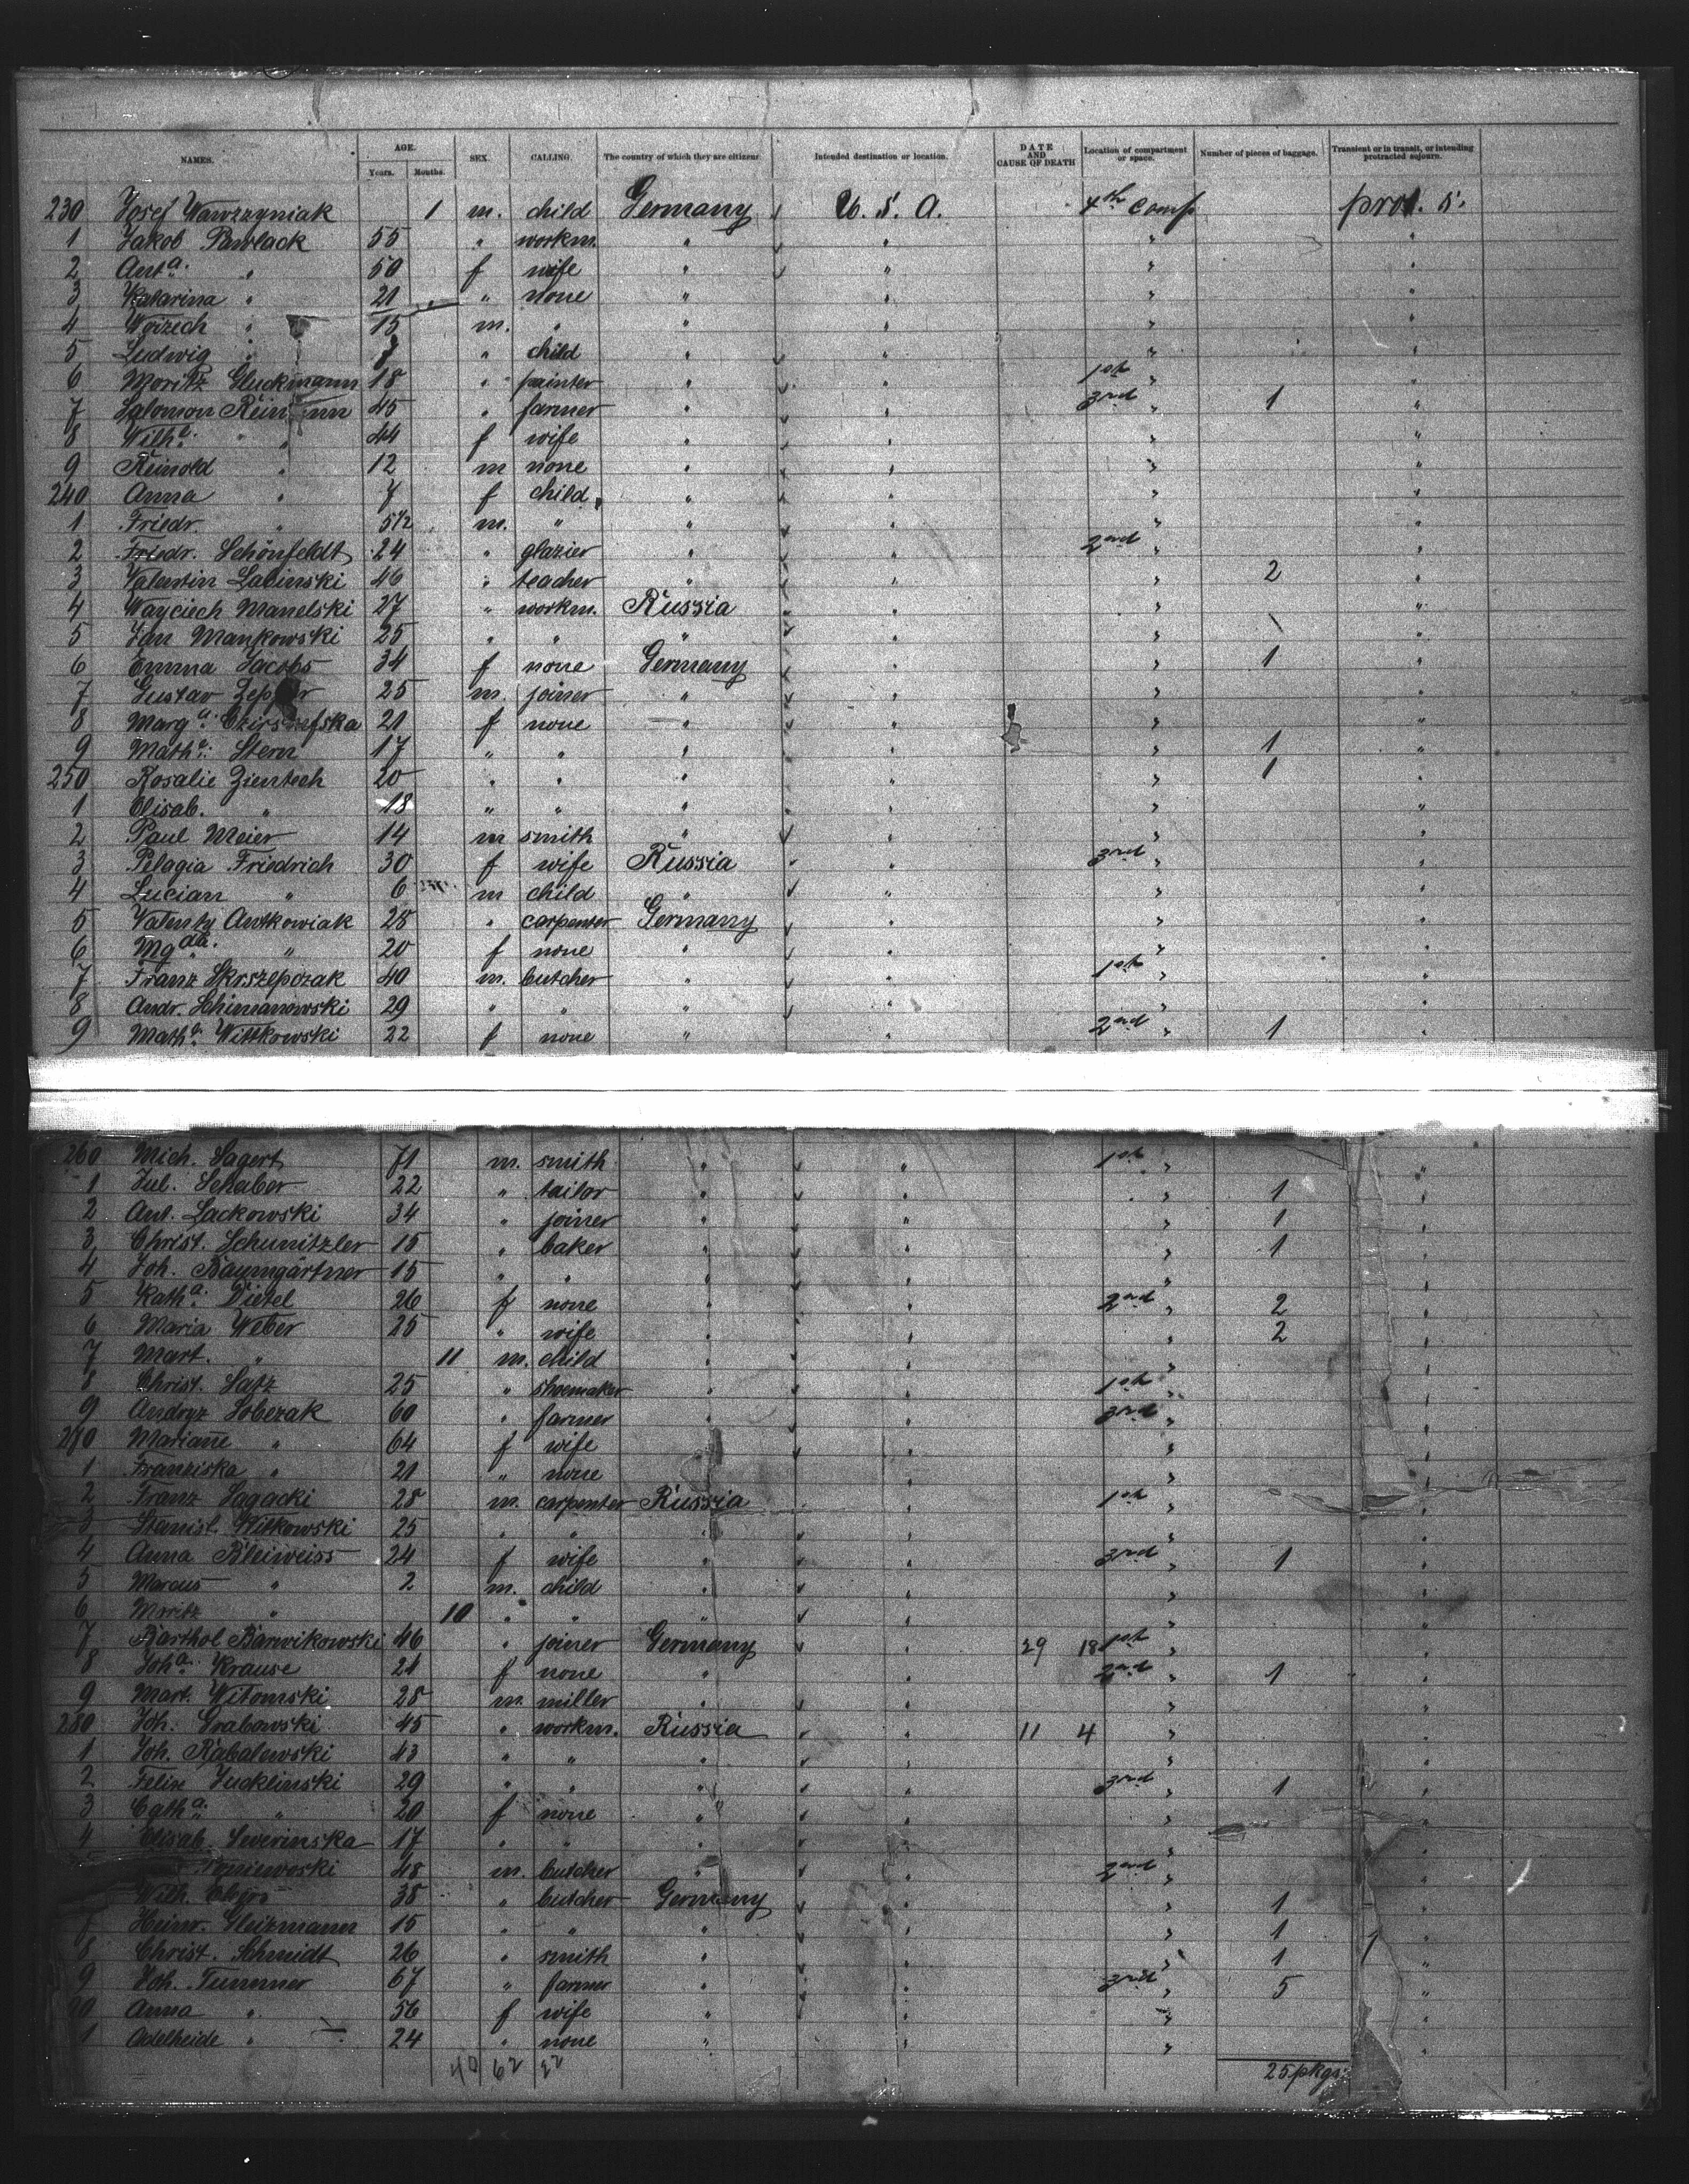 NAMES. AGE. Years. Months. SEX. CALLING. The country of which they are citizens. Intended destination or location. DATE AND CAUSE OF DEATH Location of compartment or space. Number of pieces of baggage. Transient or in transit, or intending protracted sojourn.
230 Josef Wawrzyniak 1 m. child Germany U. S. A. 4th Comp prot. s.
1 Jakob Pawlack 55 " workm. " " " "
2 Anta. " 50 f wife " " " "
3 Katarina " 21 " none " " " "
4 Woizech " 15 m. " " " " "
5 Ludwig " " child " " " "
6 Moritz Gluckmann 18 " painter " " 1st " "
7 Salomon 45 " farmer " " 3rd " 1 "
8 Wilhe. " 44 f wife " " " "
9 Reinold " 12 m none " " " "
240 Anna " 7 f child " " " "
1 Friedr. " 5 1/2 m. " " " " "
2 Friedr. Schönfeldt 24 " glazier " " 2nd " "
3 Valentin Lacinski 46 " teacher " " " 2 "
4 Wayciech Manelski 27 " workm. Russia " " "
5 Jan Mankowski 25 " " " " " "
6 Emma Jacobs 34 f none Germany " " 1 "
7 Gustav 25 m. joiner " " " "
8 Marga. 21 f none " " " "
9 Mathe. Stern 17 " " " " " 1 "
250 Rosalie Zientech 20 " " " " " 1 "
1 Elisab. " 18 " " " " " "
2 Paul Meier 14 m smith " " " "
3 Pelagia Friedrich 30 f wife Russia " 3rd " "
4 Lucian " 6 m child " " " "
5 Valenty Antkowiak 28 " carpenter Germany " " "
6 Mgda. " 20 f none " " " "
7 Franz Skrszepczak 40 m. butcher " " 1st " "
8 Andr. Schimanowski 29 " " " " " "
9 Mathe. Wittkowski 22 f none " " 2nd " 1 "
260 Mich. Sagert 71 m. smith " " 1st " "
1 Jul. Schaber 22 " tailor " " " 1 "
2 Ant. Lackowski 34 " joiner " " " 1 "
3 Christ. Schnitzler 15 " baker " " " 1 "
4 Joh. Baumgärtner 15 " " " " " "
5 Katha. Dietel 26 f none " " 2nd " 2 "
6 Maria Weber 25 " wife " " " 2 "
7 Mart. " 11 m. child " " " "
8 Christ. Satz 25 " shoemaker " " 1st " "
9 Andryz Sobczak 60 " farmer " " 3rd " "
270 Marianne " 64 f wife " " " "
1 Franziska " 21 " none " " " "
2 Franz Sagacki 28 m. carpenter Russia " 1st " "
3 Stanisl. Witkowski 25 " " " " " "
4 Anna Bleiweiss 24 f wife " " 3rd " 1 "
5 Marcus " 2 m. child " " " "
6 Moritz " 10 " " " " " "
7 Barthol Barwikowski 46 " joiner Germany " 29 18 1st " "
8 Joha. Krause 21 f none " " 2nd " 1 "
9 Mart. Witomski 28 m. miller " " " "
280 Joh. Grabowski 45 " workm. Russia " 11 4 " "
1 Joh. Rabalewski 43 " " " " " "
2 Felix Jucklinski 29 " " " " 3rd " 1 "
3 Catha. " 20 f none " " " "
4 Elisab. Severinska 17 " " " " " "
48 m. butcher " " 2nd " "
Wilh. 38 " butcher Germany " " 1 "
7 Heinr. Gleizmann 15 " " " " " 1 "
8 Christ. Schmidt 26 " smith " " " 1 "
9 Joh. Tummer 67 " farmer " " 3rd " 5 "
90 Anna " 56 f wife " " " "
1 Adelheide " 24 " none " " " "
40 62 22 25 pkgs.